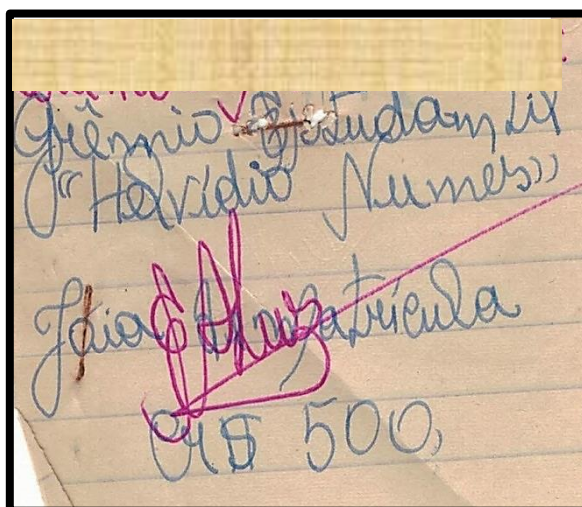 Grêmio Estudantil
"Helvídio Nunes"
Jóia matrícula
Cr$ 500,